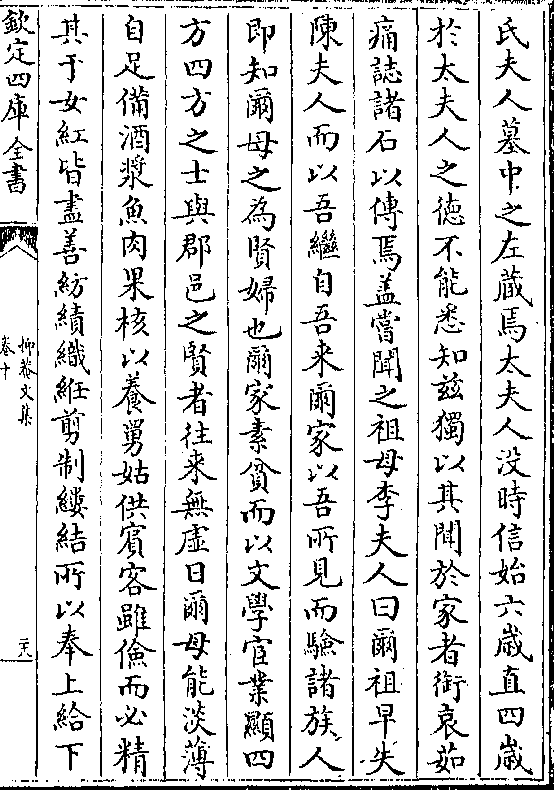 氏夫人墓中之左蔵焉太夫人没時信始六歳直四歳
於太夫人之徳不能悉知兹獨以其聞於家者銜哀茹
痛誌諸石以傳焉盖嘗聞之祖母李夫人曰爾祖早失
陳夫人而以吾繼自吾来爾家以吾所見而驗諸族人
即知爾母之為賢婦也爾家素貧而以文學宦業顯四
方四方之士與郡邑之賢者往来無虚日爾母能淡薄
自足備酒漿魚肉果核以養舅姑供賓客雖儉而必精
其于女紅皆盡善紡績織絍剪制縷結所以奉上給下
欽定四庫全書
抑菴文集
卷十
二十八